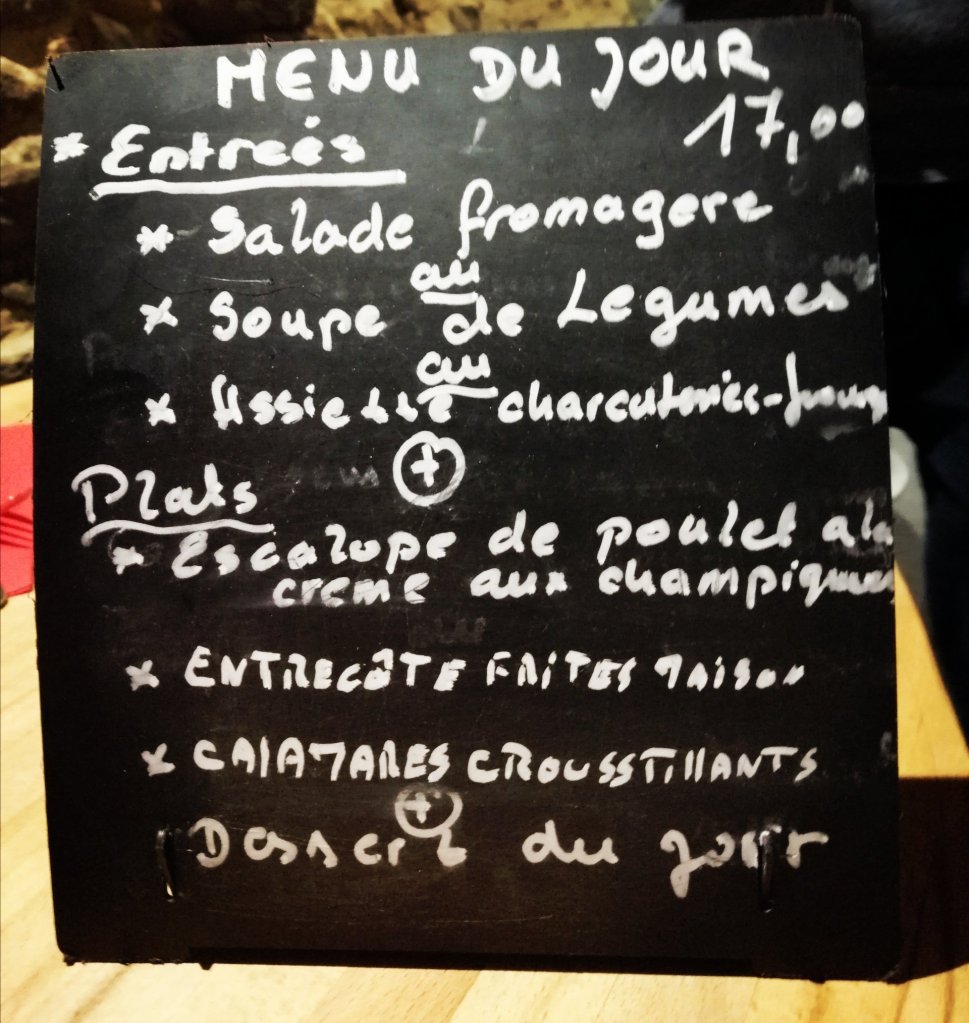 MENU DU JOUR
17,00
* Entreés
* Salade fromagere
au
* Soupe de Legumes
au
* Assiette charcuteries-
+
Plats
* Escalope de poulet a la
creme aux
* ENTRECÔTE FRITES MAISON
* CALAMARES CROUSSTILLANTS
+
Dessert du jour